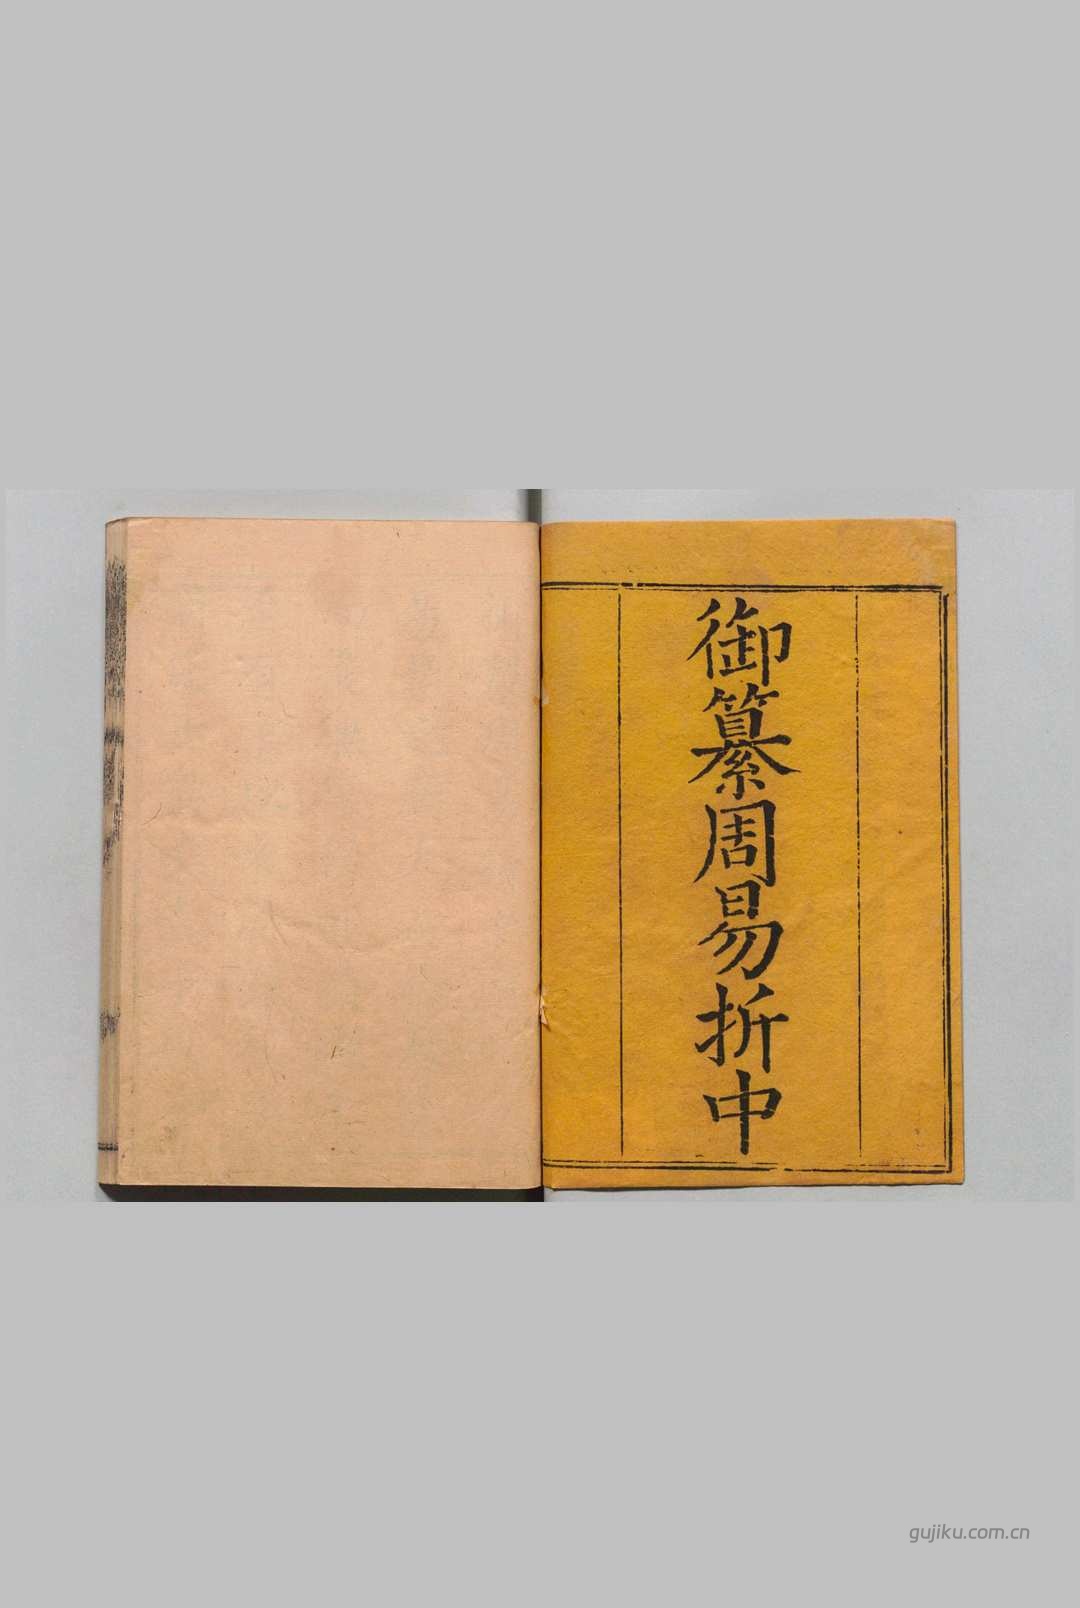 御纂周易折中
gujiku.com.cn